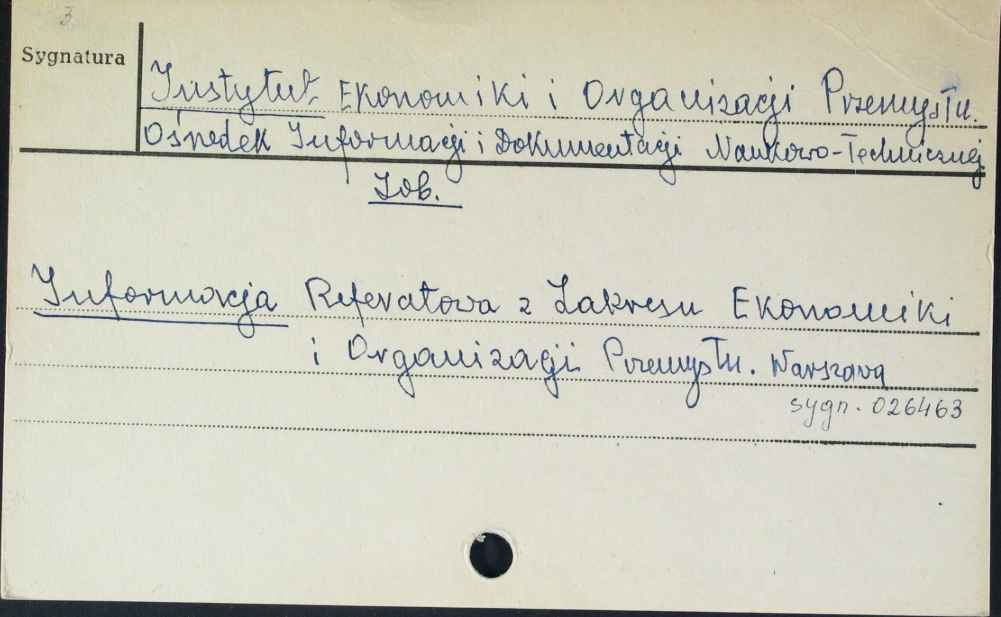 3.
Sygnatura
Instytut Ekonomiki i Organizacji Przemysłu.
Ośrodek Informacji i Dokumentacji Naukowo-Technicznej
Zob.
Informacja Referatowa z Zakresu Ekonomiki
i Organizacji Przemysłu. Warszawa
sygn. 026463